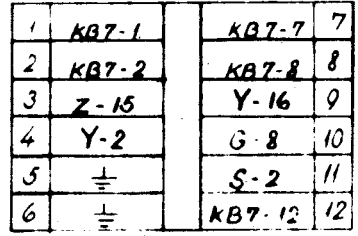 1 KB7-1 KB7-7 7
2 KB7-2 KB7-8 8
3 Z-15 Y-16 9
4 Y-2 G-8 10
5 ⏚ S-2 11
6 ⏚ KB7-12 12